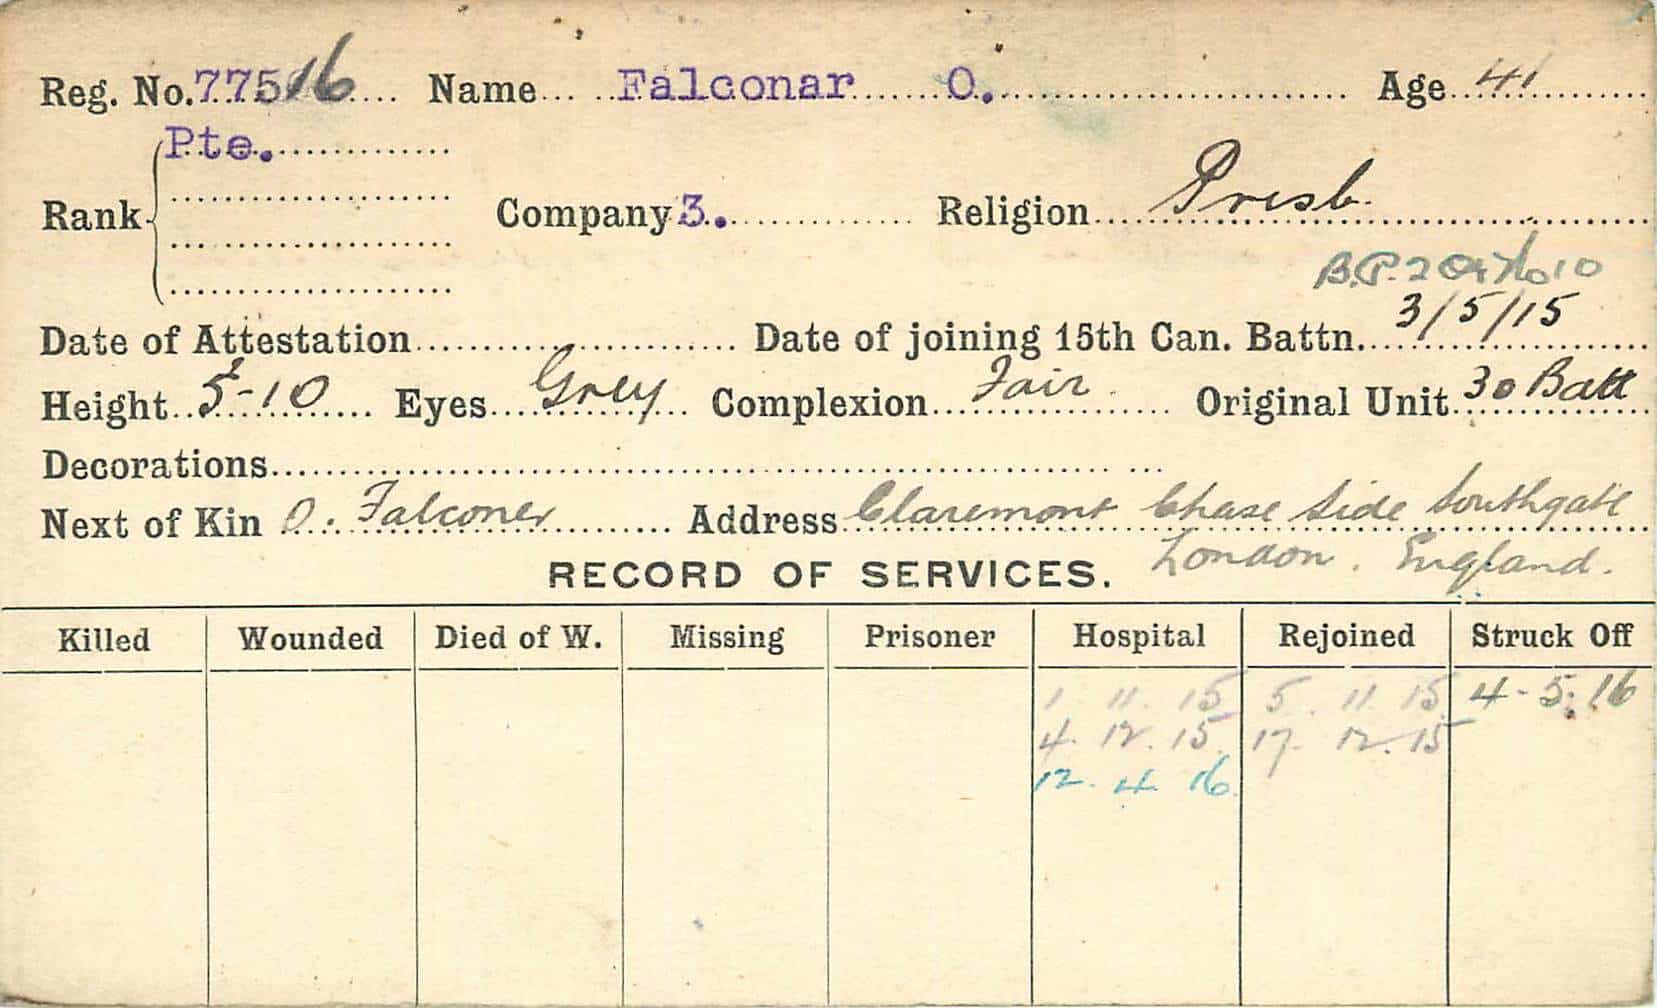 Reg. No. 77516 Name Falconar O. Age 41
Pte.
Rank Company 3. Religion Presb.
B.P. 2
3/5/15
Date of Attestation Date of joining 15th Can. Battn.
Height 5-10 Eyes Grey Complexion Fair Original Unit 30 Batt
Decorations
Next of Kin O. Falconer Address Claremont Chase Side Southgate
RECORD OF SERVICES. London. England.
Killed Wounded Died of W. Missing Prisoner Hospital Rejoined Struck Off
1 11. 15 5. 11 15 4-5.16
4. 12. 15 17. 12. 15
12. 4. 16.